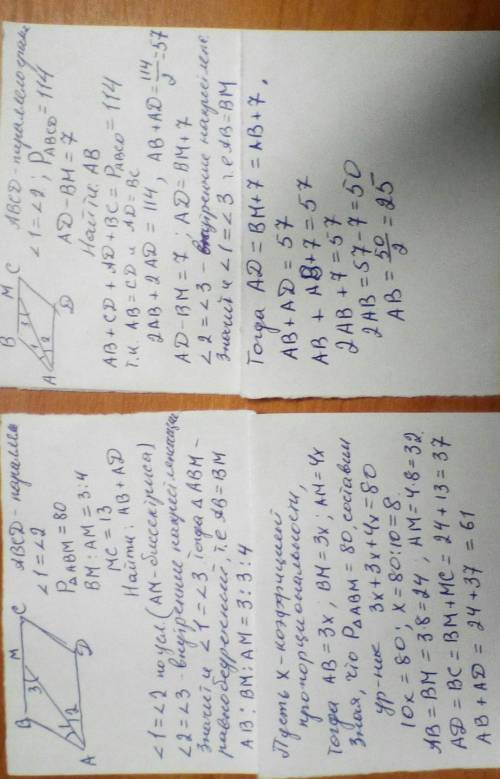 B M C
3
1
2
A D
ABCD - параллелограмм
∠1 = ∠2; P ABCD = 114
AD - BM = 7
Найти: AB
AB + CD + AD + BC = P ABCD = 114
т.к. AB = CD и AD = BC
2AB + 2AD = 114, AB + AD = 114/2 = 57
AD - BM = 7; AD = BM + 7
∠2 = ∠3 - внутренние накрест леж.
Значит ∠1 = ∠3 т.е AB = BM
Тогда AD = BM + 7 = AB + 7,
AB + AD = 57
AB + AB + 7 = 57
2AB + 7 = 57
2AB = 57 - 7 = 50
AB = 50/2 = 25
B M C
3
1
2
A D
ABCD - паралле
∠1 = ∠2
P△ABM = 80
BM : AM = 3:4
MC = 13
Найти: AB + AD
∠1 = ∠2 по усл. (AM - биссектриса)
∠2 = ∠3 - внутренние накрест лежащие
Значит ∠1 = ∠3 Тогда △ABM -
равнобедренный, т.е AB = BM
AB : BM : AM = 3:3:4
Пусть x - коэффициент
пропорциональности,
Тогда AB = 3x, BM = 3x, AM = 4x
Зная, что P△ABM = 80, составим
ур-ние 3x + 3x + 4x = 80
10x = 80; x = 80:10 = 8
AB = BM = 3·8 = 24, AM = 4·8 = 32
AD = BC = BM + MC = 24 + 13 = 37
AB + AD = 24 + 37 = 61